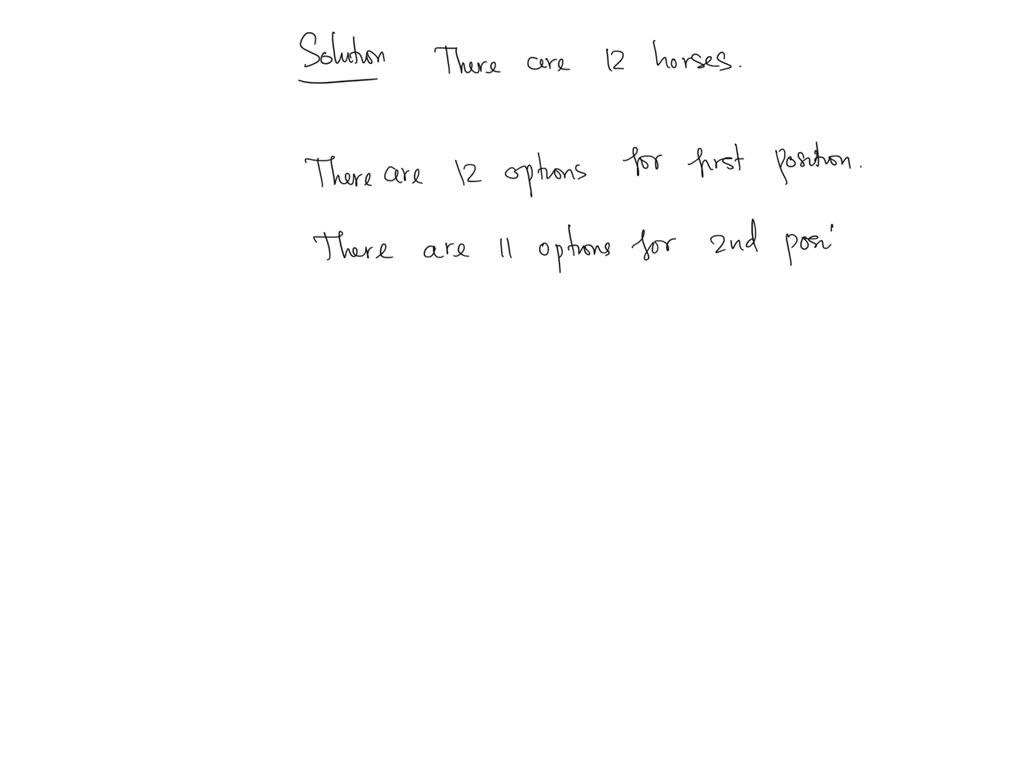 Solution There are 12 horses.
There are 12 options for first position.
There are 11 options for 2nd posi